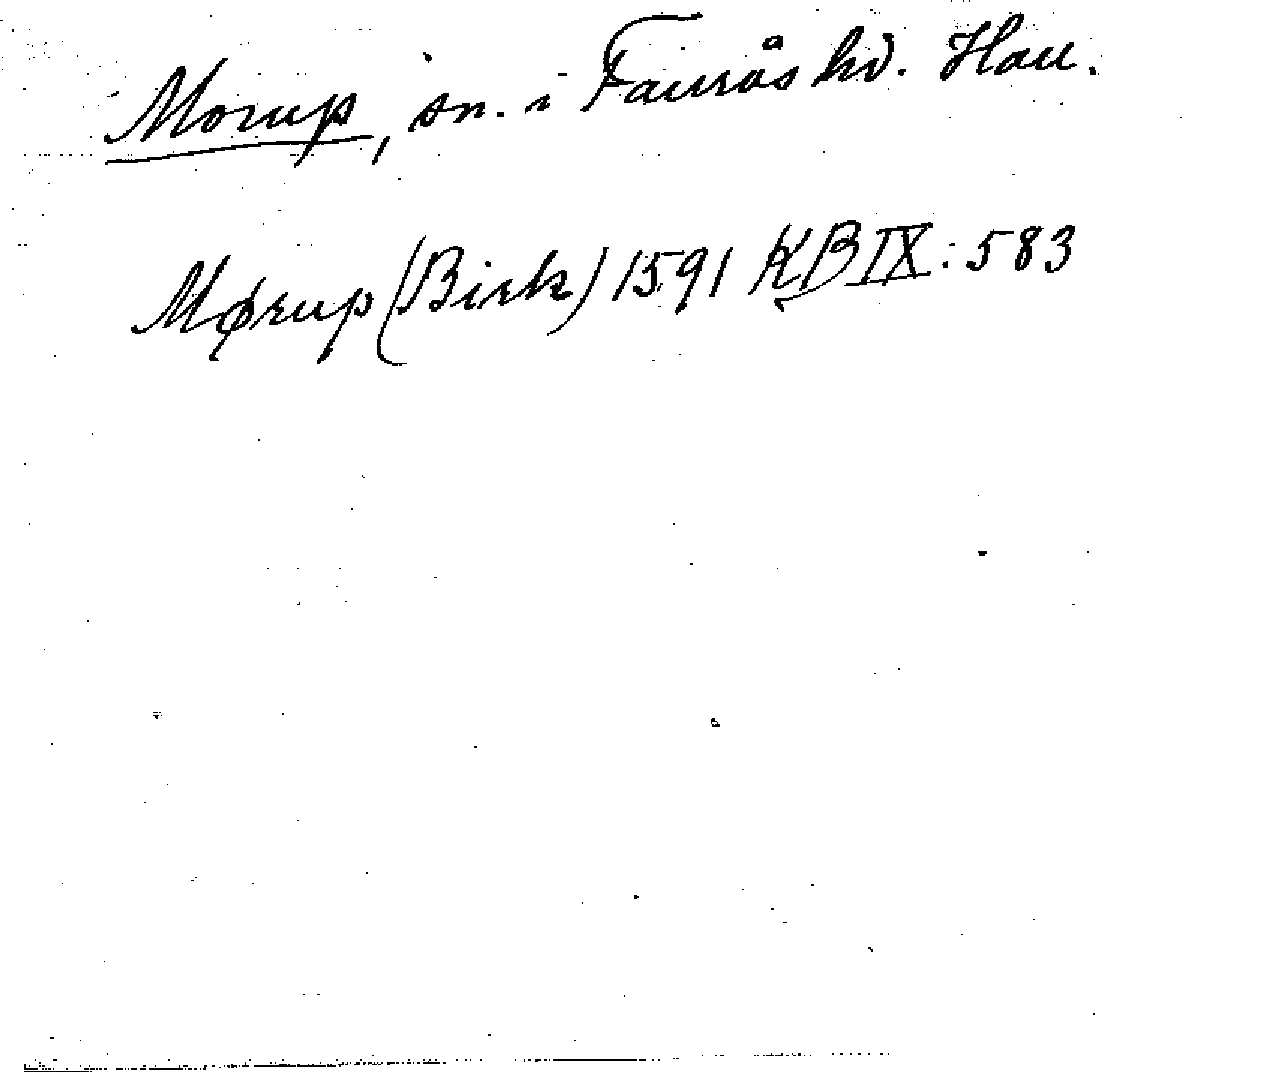 Morup, sn. i Faurås hd. Hall.
Mørup (Birk) 1591 KB IX: 583